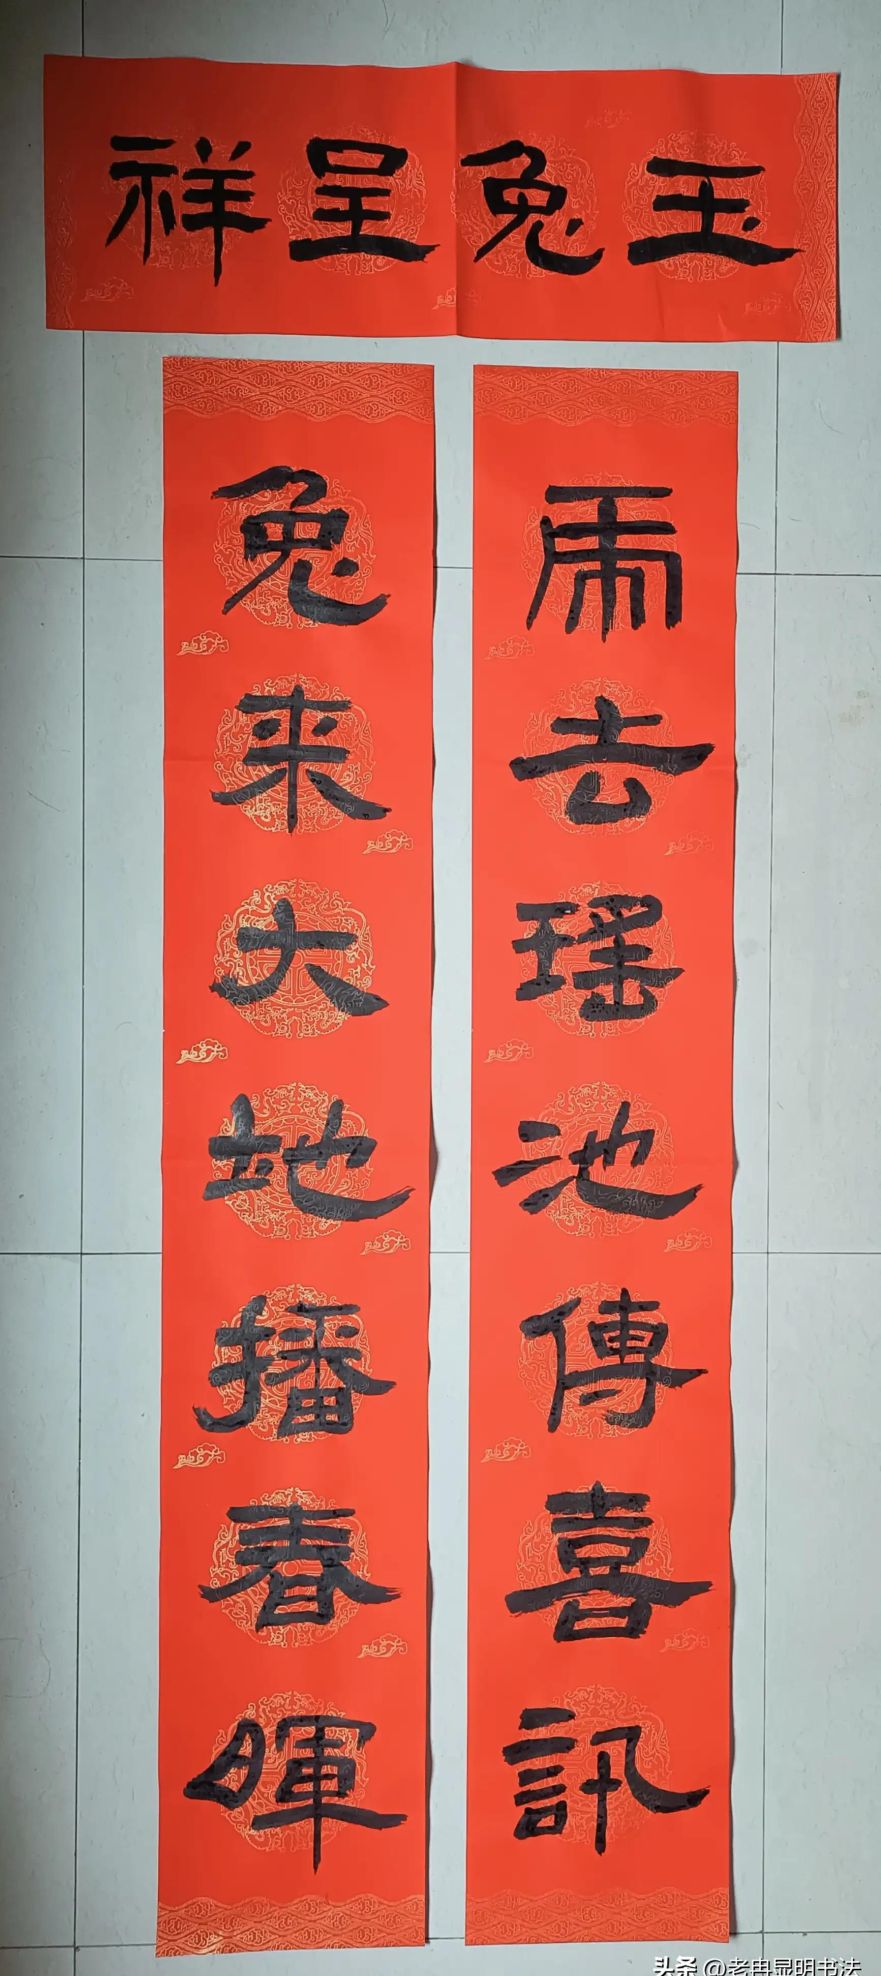 玉兔呈祥
虎去瑶池傳喜訊
兔来大地播春暉
头条 @老冉显明书法